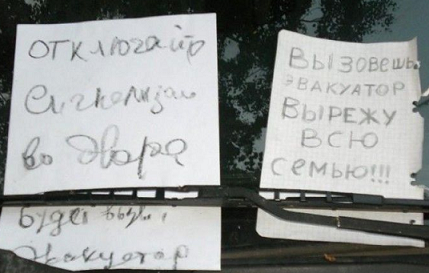 ОТКЛЮЧАЙТЕ
Сигнализа
во дворе
Будет
Эвакуатор
ВЫЗОВЕШЬ
ЭВАКУАТОР
ВЫРЕЖУ
ВСЮ
СЕМЬЮ!!!